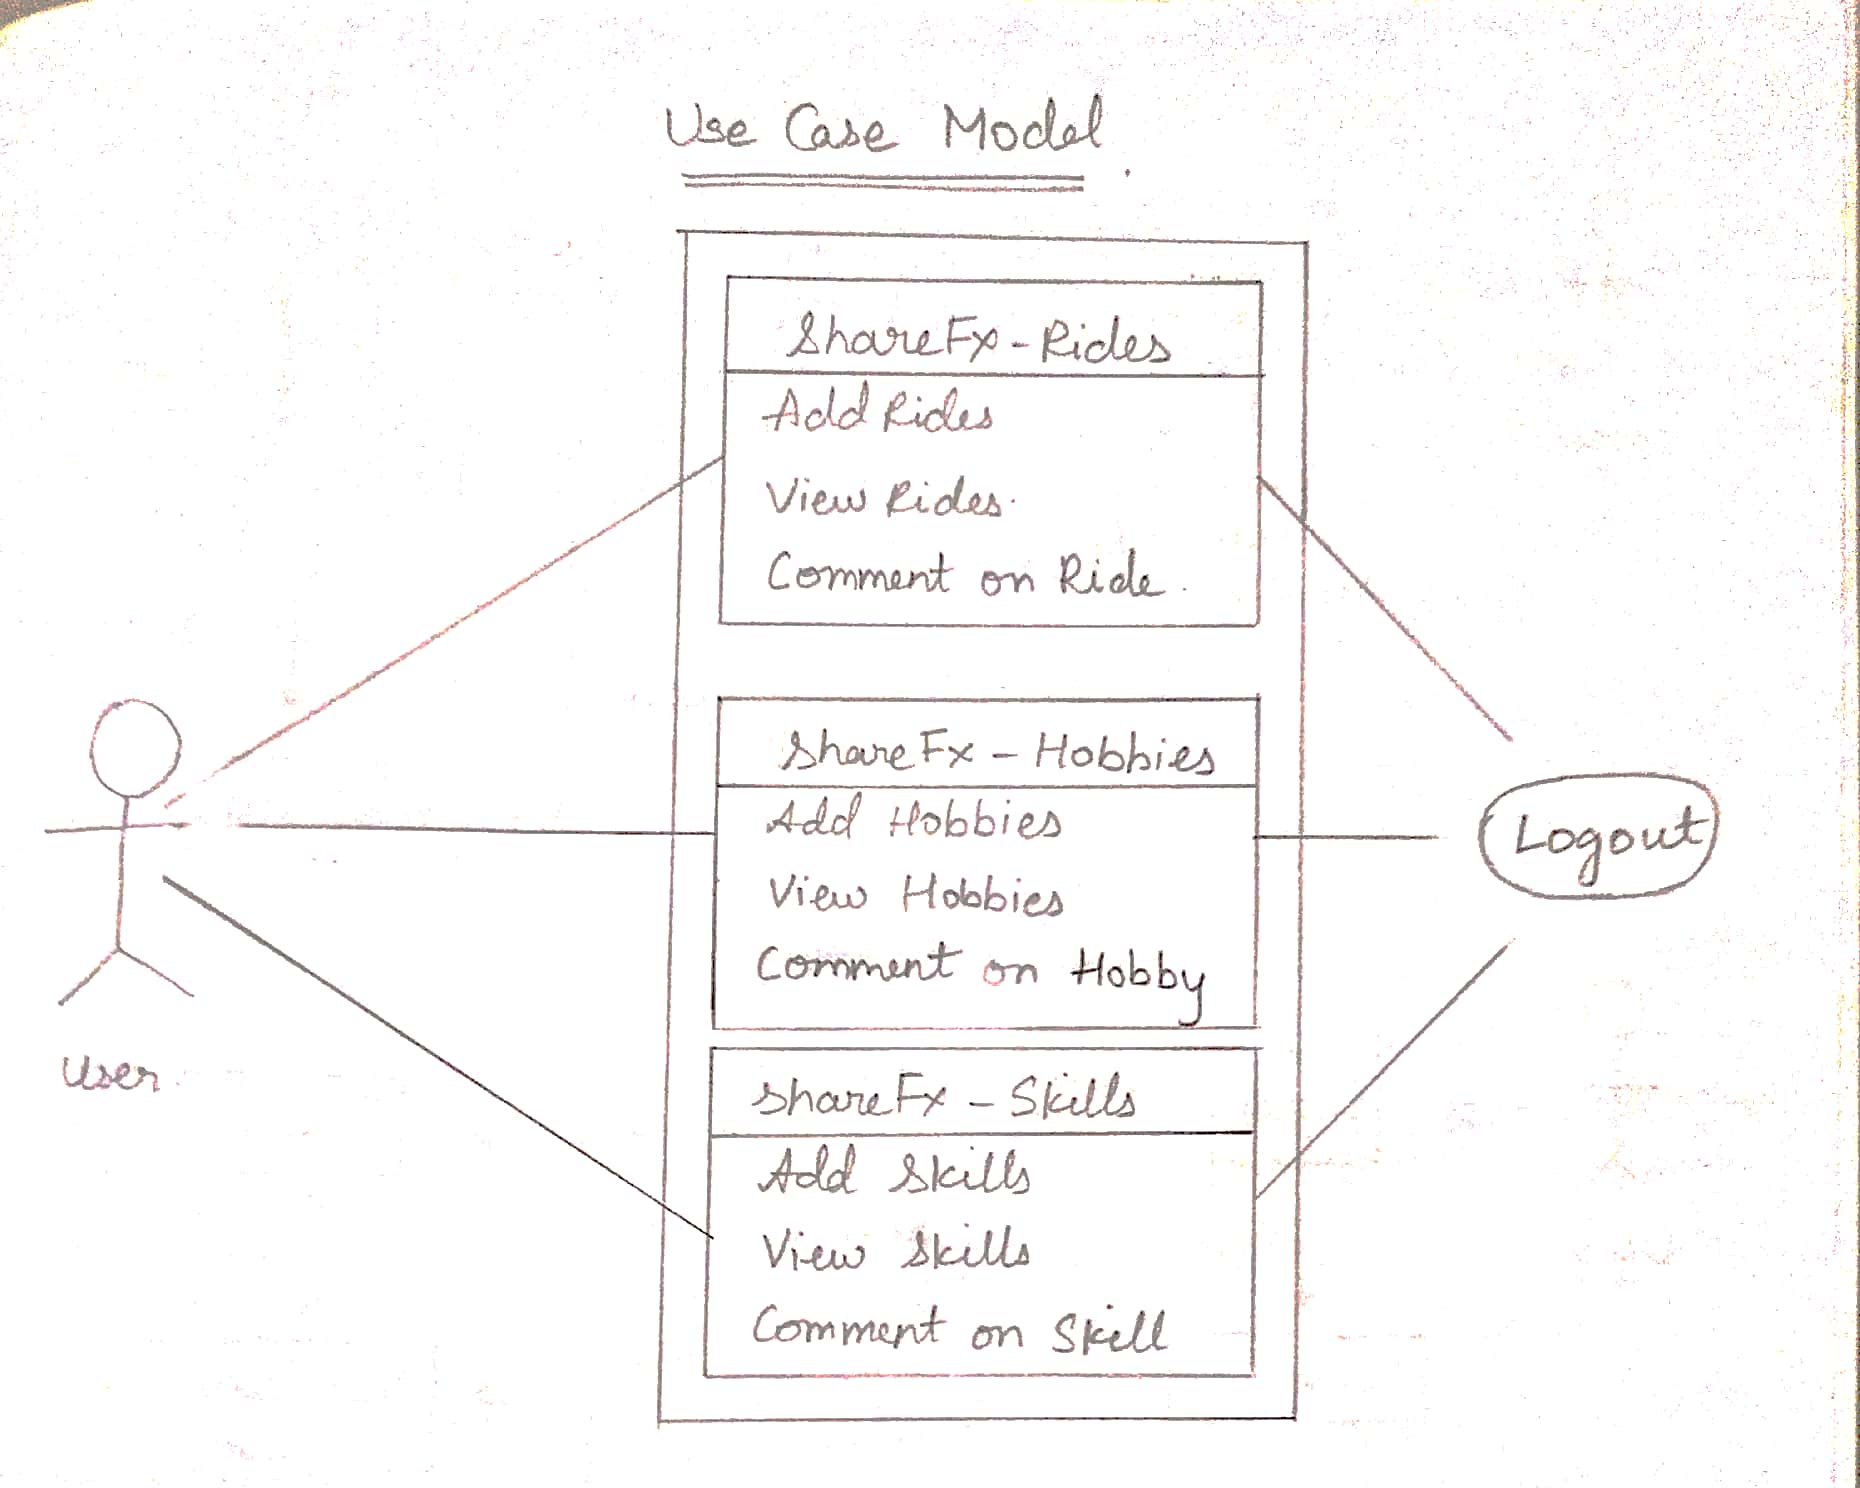 Use Case Model.
ShareFx - Rides
Add Rides
View Rides.
Comment on Ride.
ShareFx - Hobbies
Add Hobbies
View Hobbies
Comment on Hobby
Logout
User.
ShareFx - Skills
Add Skills
View Skills
Comment on Skill